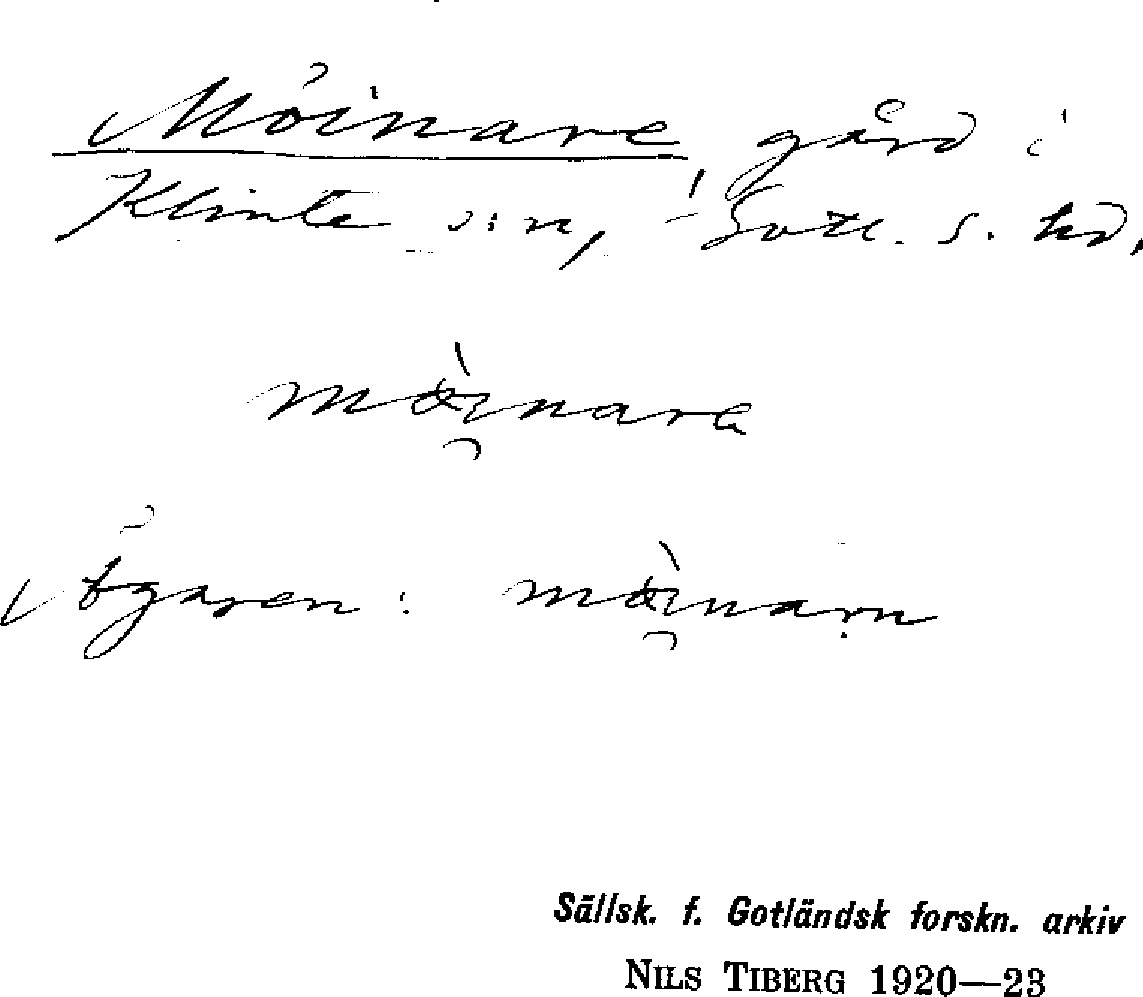 Möinare, gård i
Klinte s:n, Gotl. s. hd.
mòi̯nare
Ägaren: mòi̯narn
Sällsk. f. Gotländsk forskn. arkiv
NILS TIBERG 1920—23